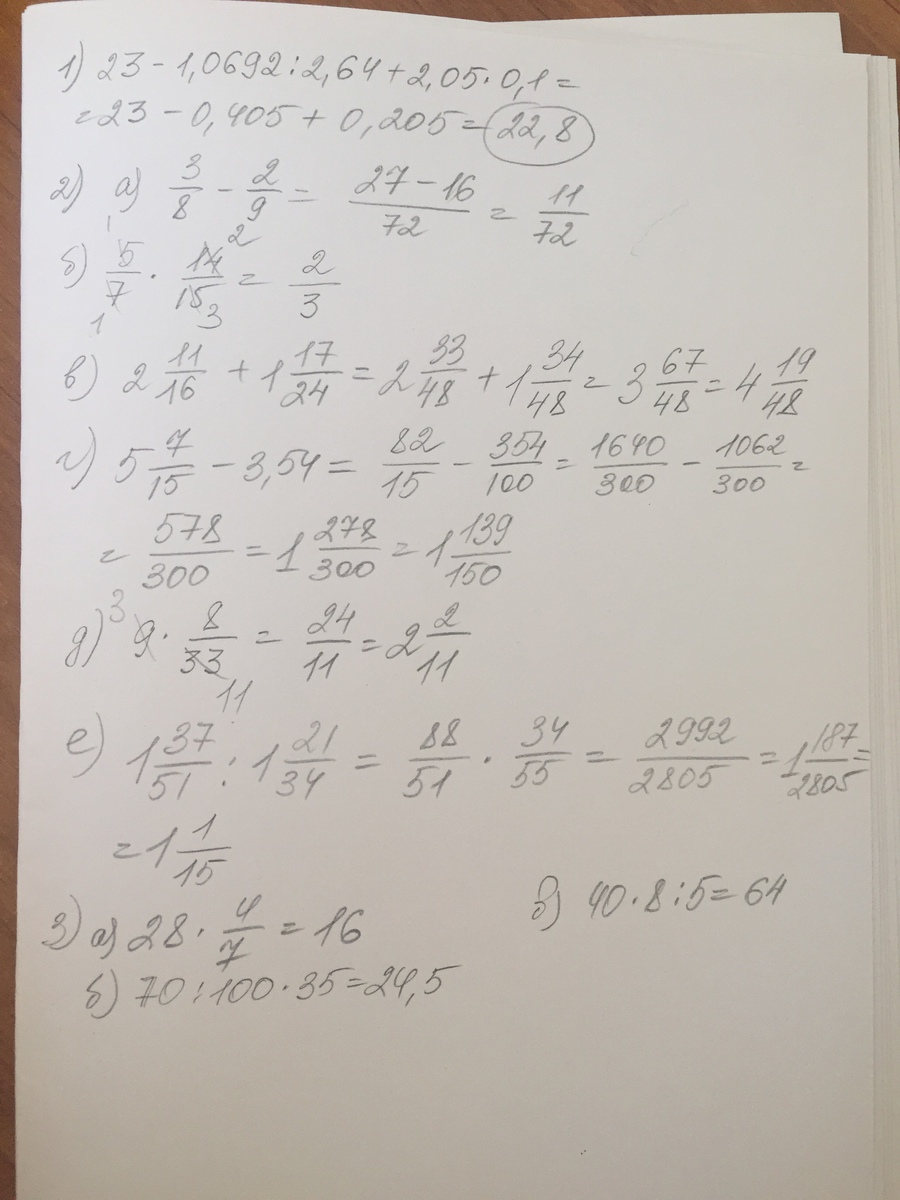 1) 23 - 1,0692 : 2,64 + 2,05 · 0,1 =
= 23 - 0,405 + 0,205 = 22,8
2) а) 3/8 - 2/9 = (27 - 16)/72 = 11/72
б) 5/7 · 14/15 = 2/3
1 1 2 3
в) 2 11/16 + 1 17/24 = 2 33/48 + 1 34/48 = 3 67/48 = 4 19/48
г) 5 7/15 - 3,54 = 82/15 - 354/100 = 1640/300 - 1062/300 =
= 578/300 = 1 278/300 = 1 139/150
д) 3 9 · 8/33 = 24/11 = 2 2/11
11
е) 1 37/51 : 1 21/34 = 88/51 · 34/55 = 2992/2805 = 1 187/2805 =
= 1 1/15
3) а) 28 · 4/7 = 16
в) 40 · 8 : 5 = 64
б) 70 : 100 · 35 = 24,5